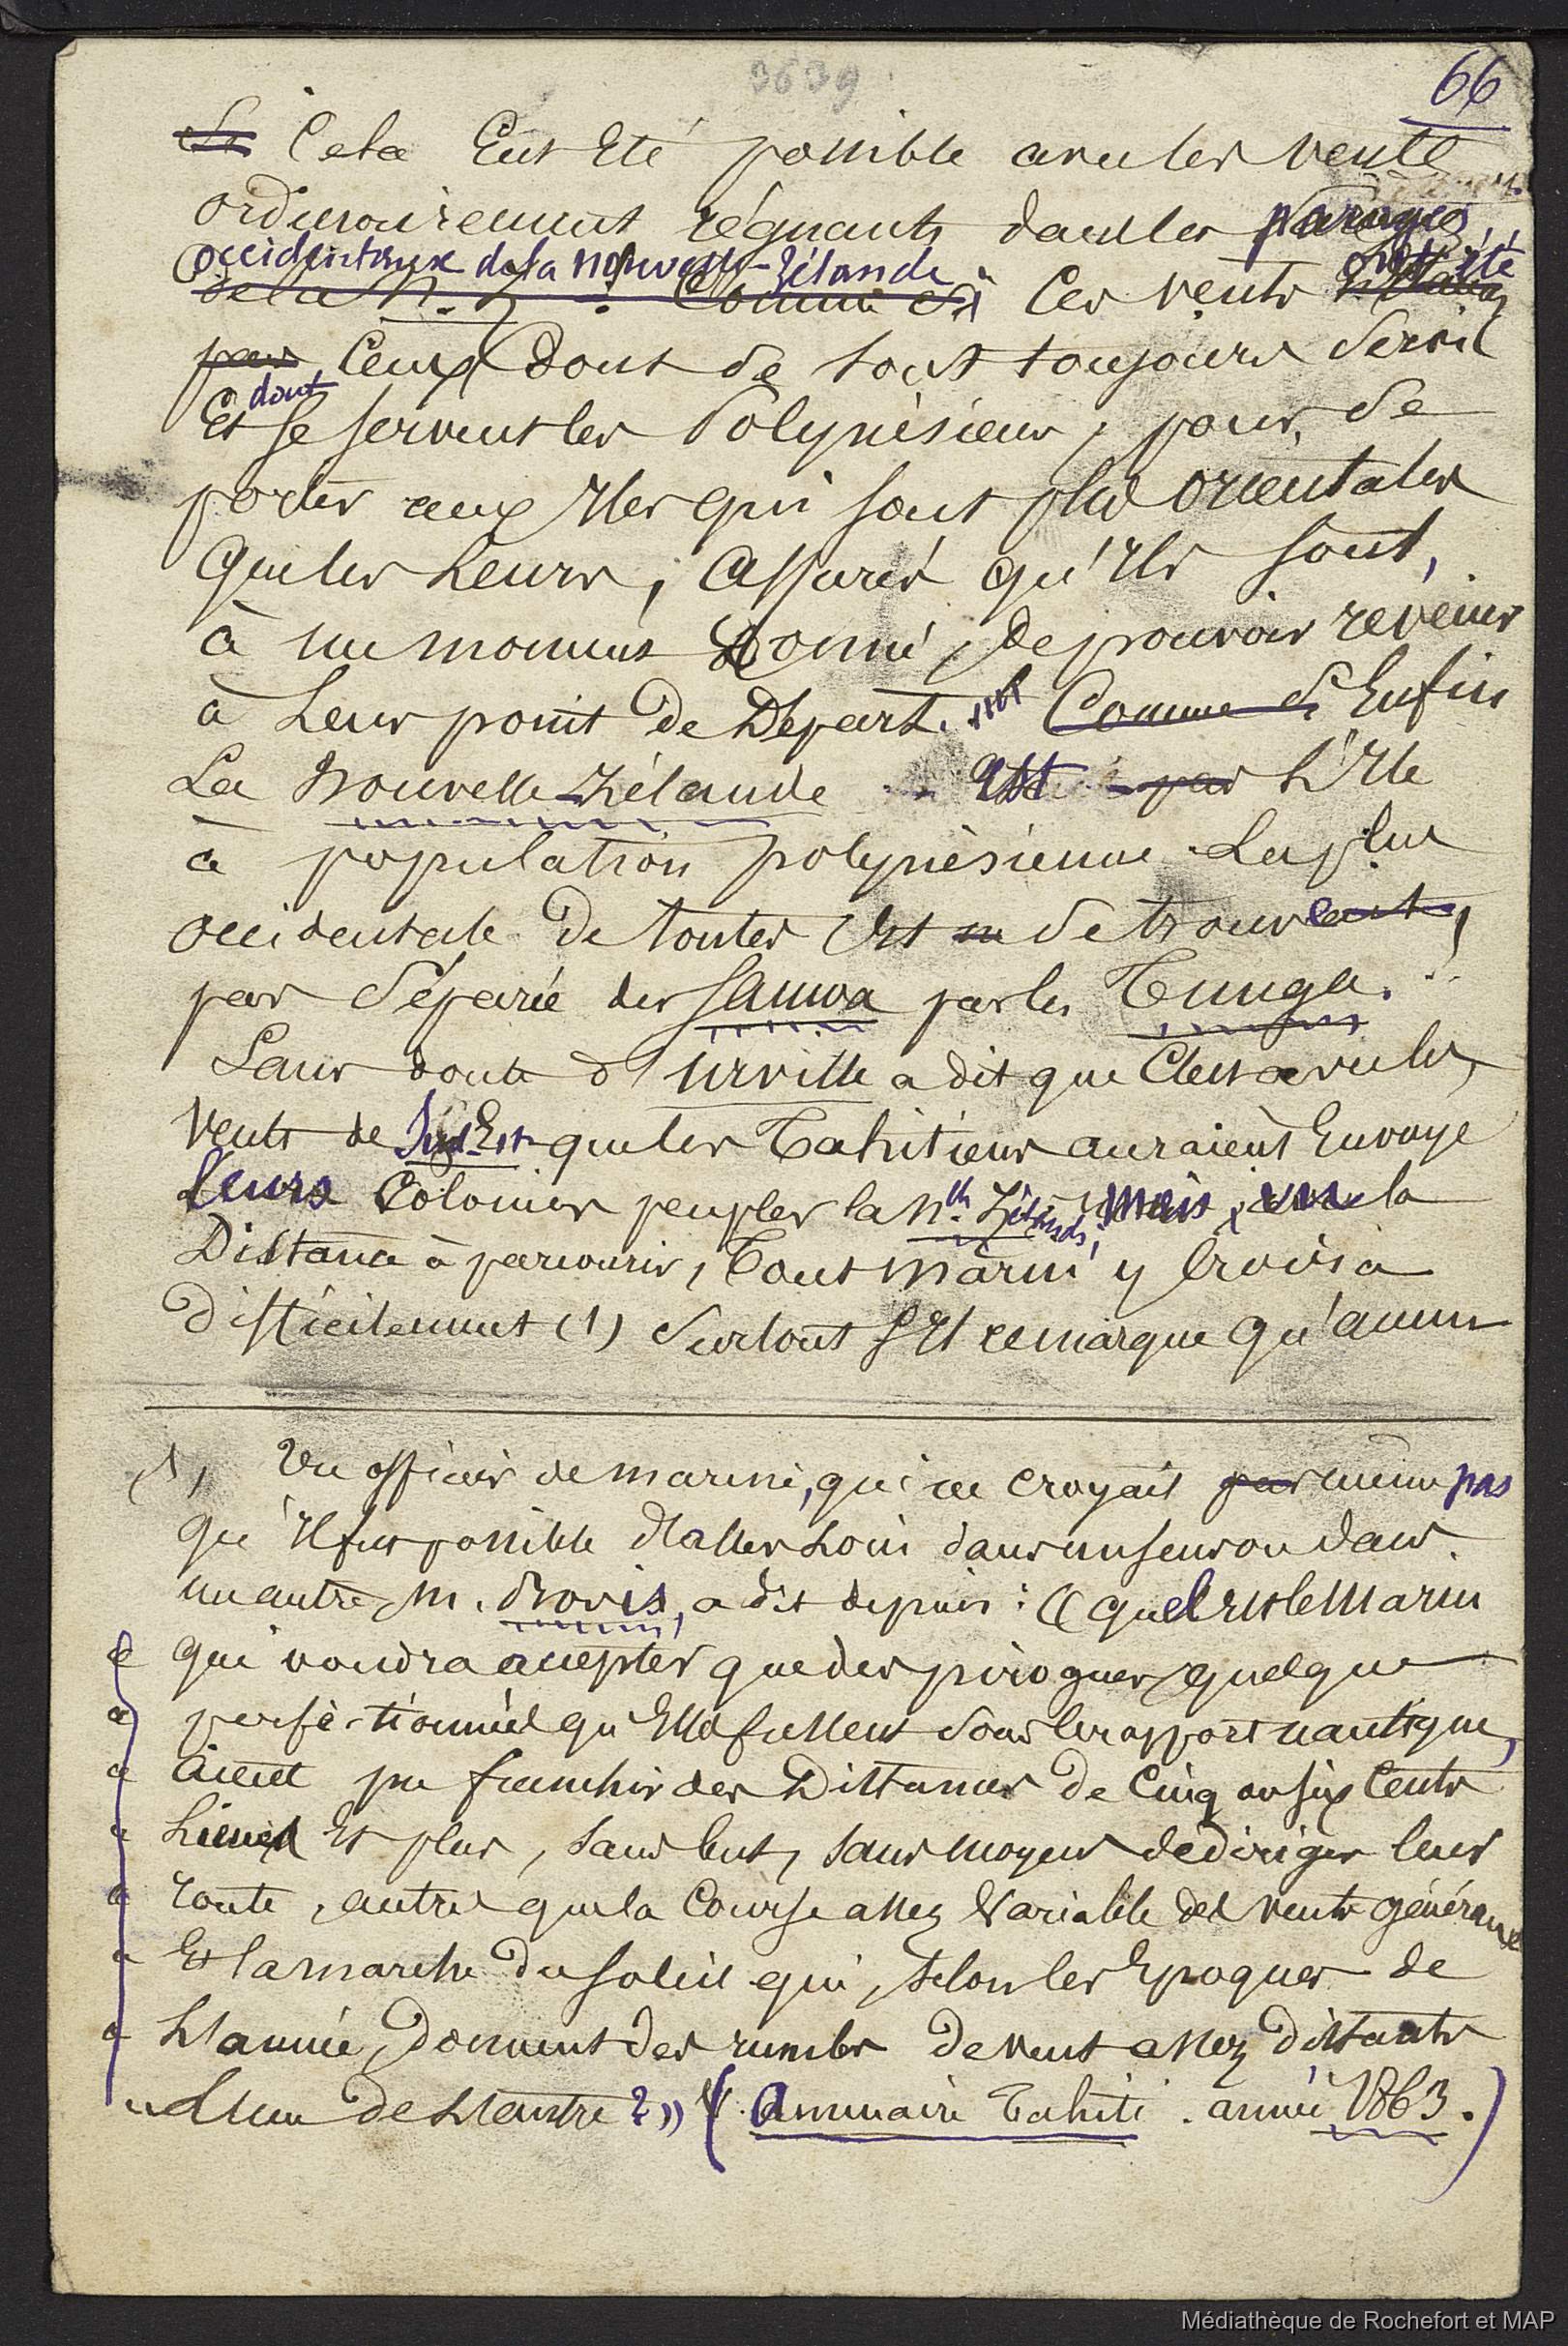 3639
66
Si Cela Eut Eté possible avec les vents
ordinairement régnants dans les parages
occidentaux de la nouvelle-Zélande
de la N. Z. Comme si Ces vents ont été
pas Ceux dont se sont toujours servi
dont
Et se servent les Polynésiens, pour se
porter aux Iles qui sont plus orientales
que les leurs, assurés qu'Ils sont,
à un moment donné, de pouvoir revenir
à Leur point de Départ. Comme si Enfin
La Nouvelle-Zélande Est pas L'Ile
à population polynésienne La plus
occidentale de toutes Et se trouve
pas séparée des Samoa par les Tunga.
Sans doute d'Urville a dit que C'est avec les
vents de Sud-Est que les Tahitiens auraient Envoyé
leurs Colonies peupler la Nlle Zélande; Mais, vu la
Distance à parcourir, Tout marin y Croira
difficilement (1) surtout s'Il remarque qu'aucun
(1) Un officier de marine, qui ne croyait pas même pas
qu'Il fut possible d'aller Loin dans un sens ou dans
un autre, M. Bovis, a dit depuis : « quel Est le Marin
« qui voudra accepter que des pirogues, quelque
« perfectionnées qu'Elles fussent sous le rapport nautique,
« aient pu franchir des Distances de Cinq ou six Cents
« Lieues Et plus, sans but, sans moyens de diriger leur
« route, autres que la Course assez Variable des vents généraux
« Et la marche du soleil qui, selon les Epoques de
« L'année, donnent des rumbs de vent assez distants
« L'un de L'autre ? » (Annuaire Tahiti. année 1863.)
Médiathèque de Rochefort et MAP